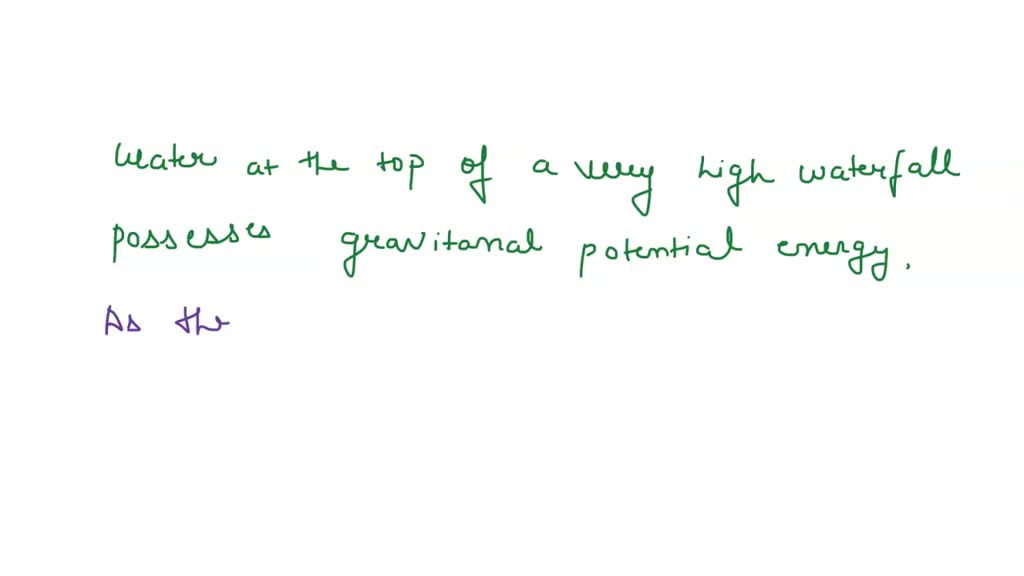 Water at the top of a very high waterfall
possesses gravitanal potential energy.
As the